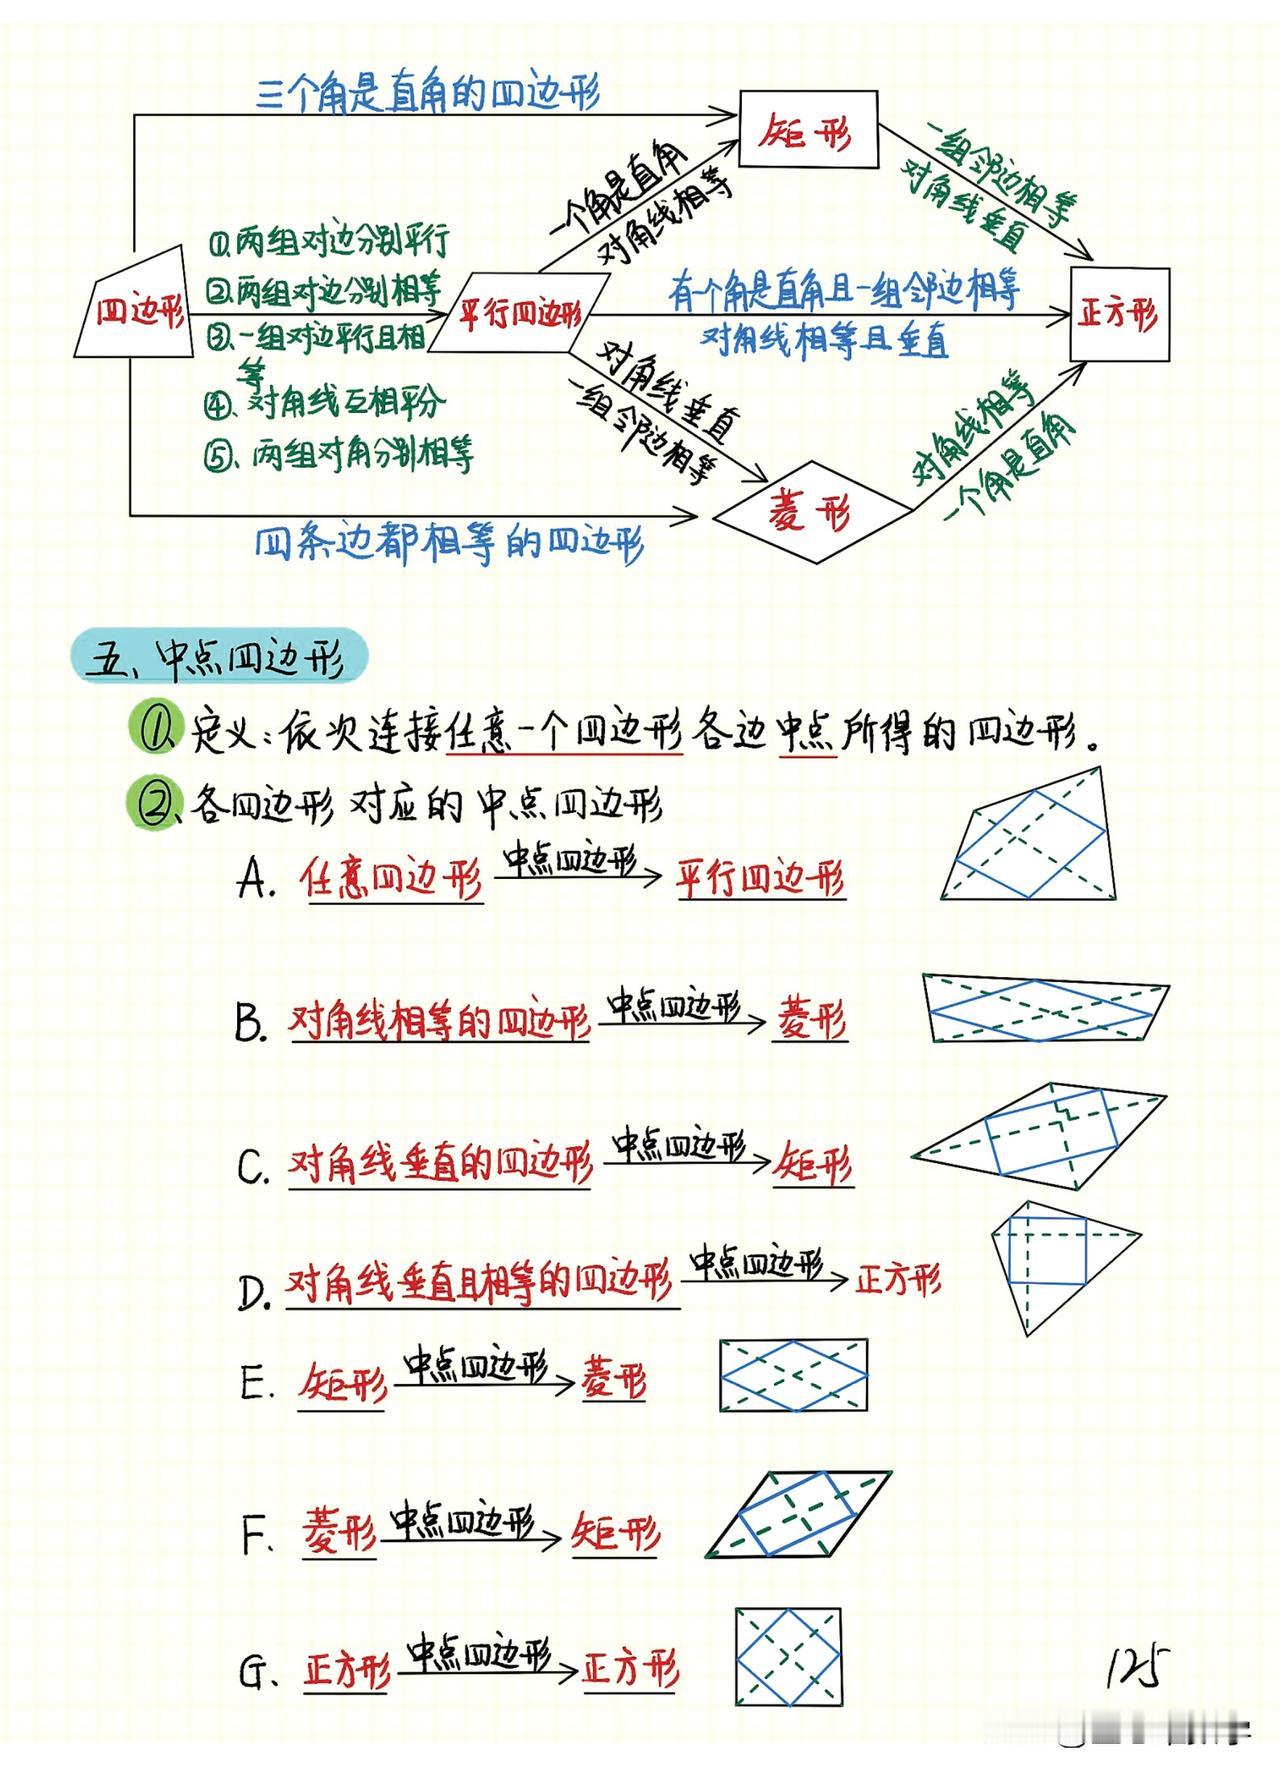 三个角是直角的四边形
矩形
一个角是直角
对角线相等
一组邻边相等
对角线垂直
①、两组对边分别平行
②、两组对边分别相等
③、一组对边平行且相
等
④、对角线互相平分
⑤、两组对角分别相等
四边形
平行四边形
有个角是直角且一组邻边相等
对角线相等且垂直
正方形
对角线垂直
一组邻边相等
对角线相等
一个角是直角
菱形
四条边都相等的四边形
五、中点四边形
①、定义：依次连接任意一个四边形各边中点所得的四边形。
②、各四边形对应的中点四边形
A. 任意四边形 中点四边形 平行四边形
B. 对角线相等的四边形 中点四边形 菱形
C. 对角线垂直的四边形 中点四边形 矩形
D. 对角线垂直且相等的四边形 中点四边形 正方形
E. 矩形 中点四边形 菱形
F. 菱形 中点四边形 矩形
G. 正方形 中点四边形 正方形
125